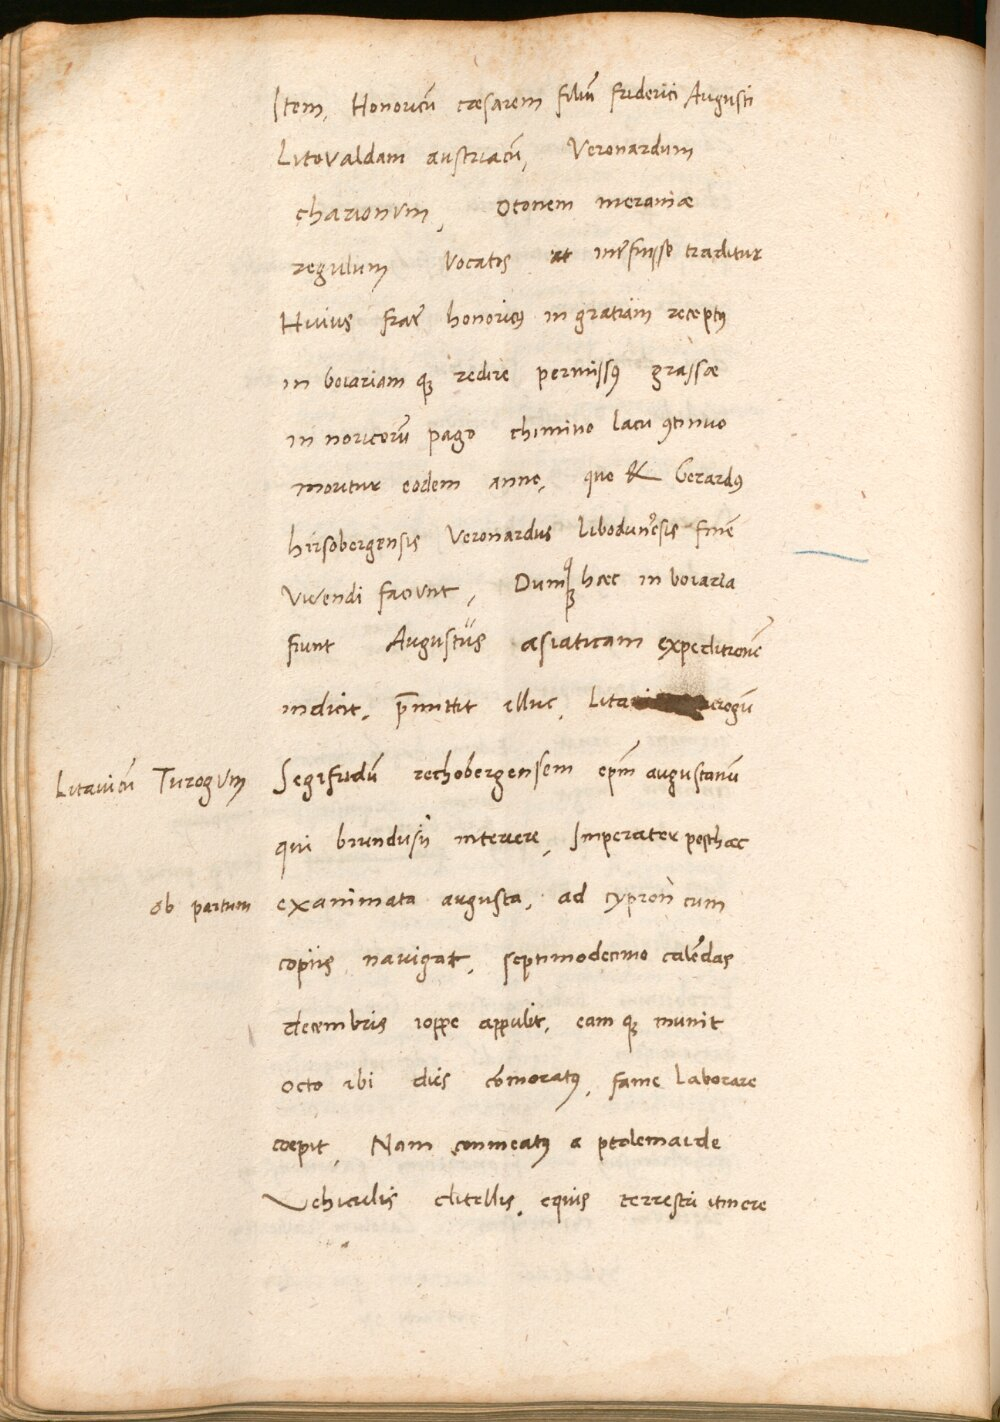 Item, Honoricū cæsarem filiū friderici Augusti
Litovaldam austriacū, Veronardum
charionum, Otonem meraniæ
regulum vocatos at interfuisse traditur
Huius frater honoricus in gratiam receptus
in boiariam que redire permissus grassæ
in noricorū pago chimino lacu continuo
moritur eodem anno, quo & Gerardus
hirsobergensis Veronardus libodunēsis finē
vivendi faciunt, Dumque hæc in boiaria
fiunt Augustus asiaticam expeditionē
indicit, præmittit illuc, Lita
Litauicū Turogum Segifridū rechobergensem epm̄ augustanū
qui brundusii interiere, Imperator posthac
ob partum exanimata augusta, ad cypron cum
copiis navigat, septimodecimo calēdas
decembris ioppe appulit, eam que munit
octo ibi dies cōmoratus, fame laborare
coepit, Nam commeatus a ptolemaide
Vehiculis clitellis, equis terrestri itinere